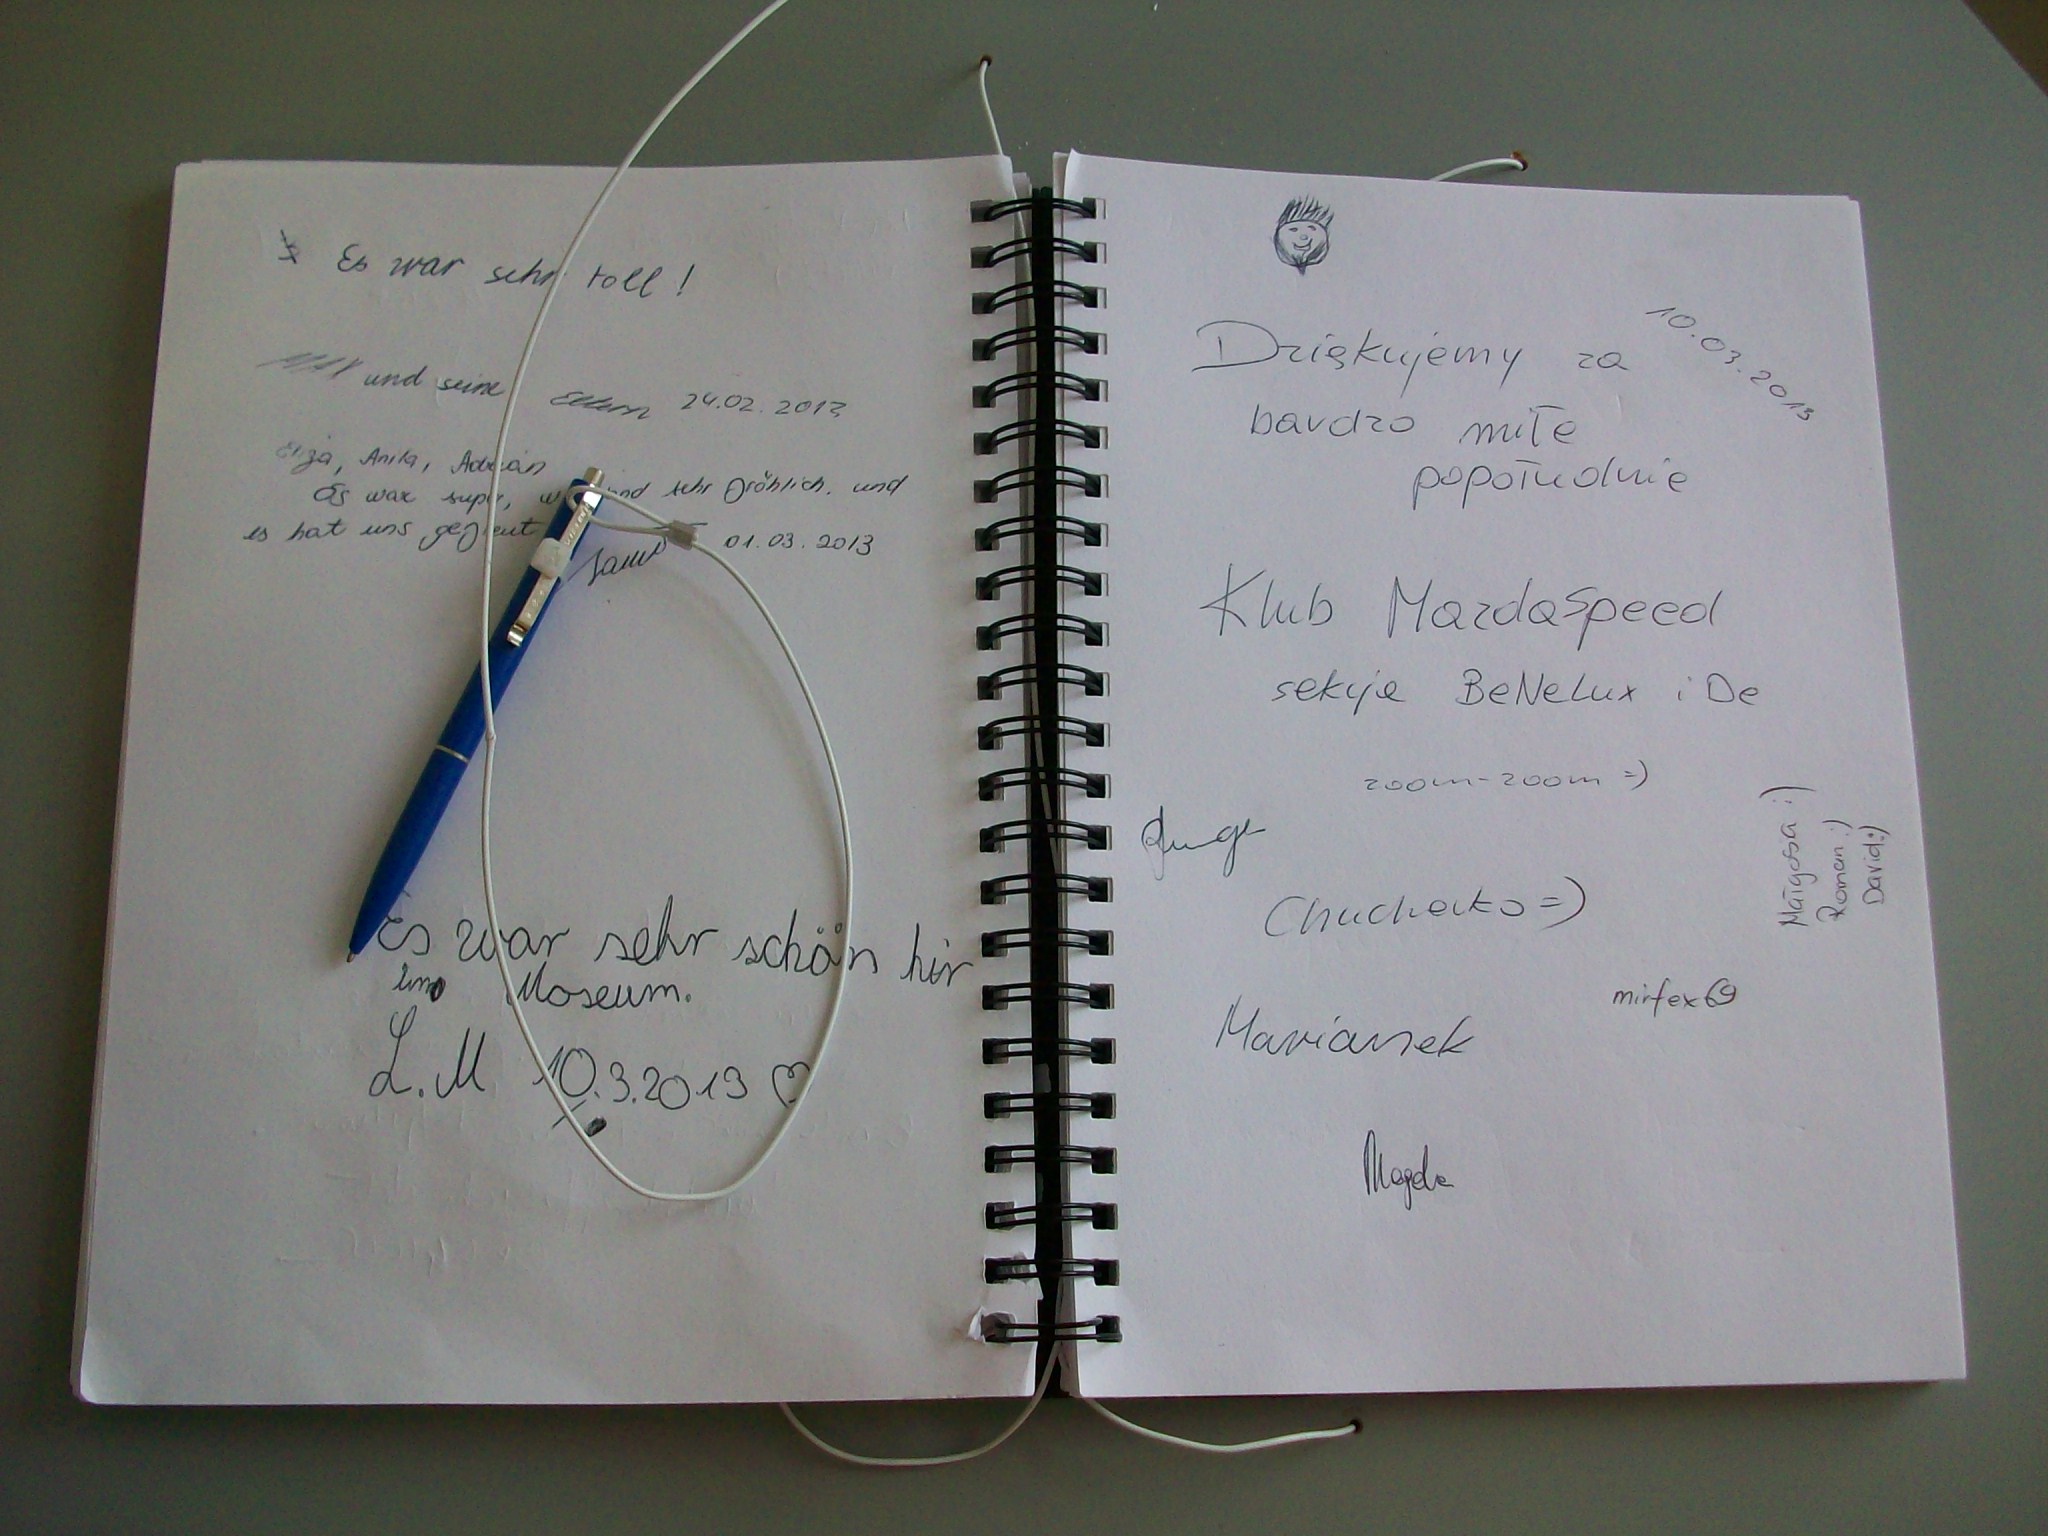 Es war sehr toll!
und seine Eltern 24.02.2013
Anita, Adrian
Es war super, und sehr fröhlich, und
es hat uns gefreut
01.03.2013
Es war sehr schön hir
im Moseum.
L.M 10.3.2013 ♡
10.03.2013
Dziękujemy za
bardzo miłe
popołudnie
Klub MazdaSpeed
sekcja BeNeLux i De
zoom-zoom =)
Chuchacko =)
mirfex69
Marianek
Magda
Małgosia :)
Roman :)
David :)